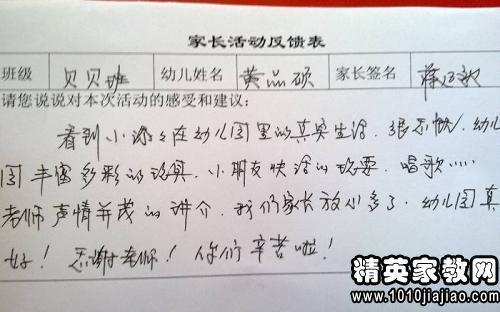 家长活动反馈表
班级 贝贝班 幼儿姓名 黄品硕 家长签名
请您说说对本次活动的感受和建议：
看到小孩子在幼儿园里的真实生活，很感慨，幼儿
园丰富多彩的玩具，小朋友快活的玩耍，唱歌……
老师声情并茂的讲介，我们家长放心多了，幼儿园真
好！感谢老师！你们辛苦啦！
精英家教网
www.1010jiajiao.com